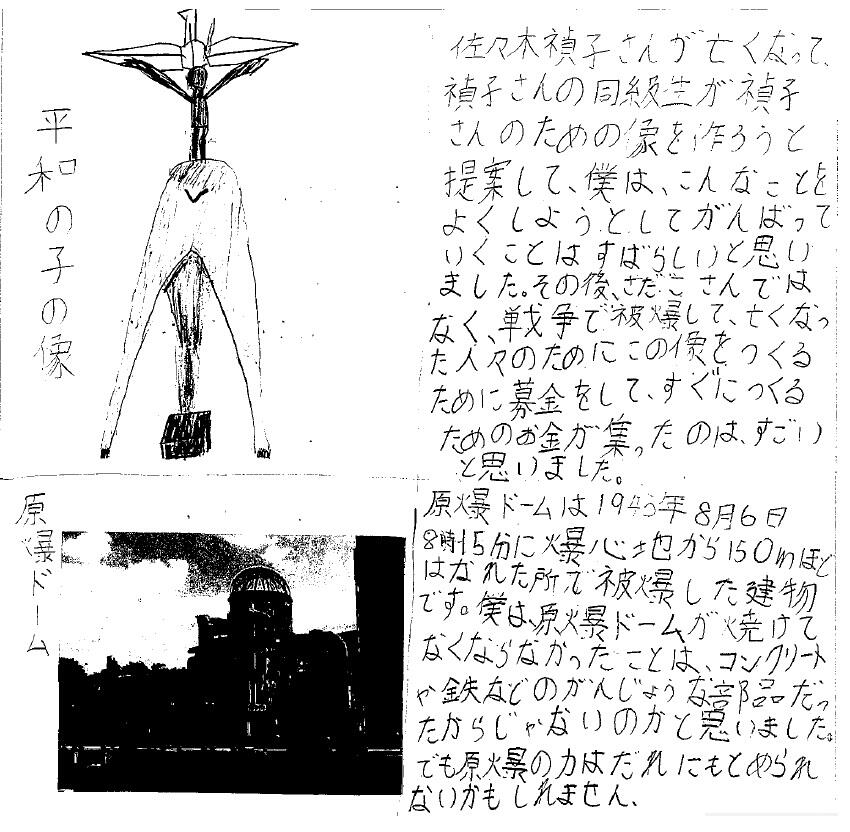 平和の子の像
佐々木禎子さんが亡くなって、
禎子さんの同級生が禎子
さんのための像を作ろうと
提案して、僕は、こんなことを
よくしようとしてがんばって
いくことはすばらしいと思い
ました。その後、さだこさんでは
なく、戦争で被爆して、亡くなっ
た人々のためにこの像をつくる
ために募金をして、すぐにつくる
ためのお金が集ったのは、すごい
と思いました。
原爆ドーム
原爆ドームは1945年8月6日
8時15分に爆心地から150mほど
はなれた所で被爆した建物
です。僕は、原爆ドームが焼けて
なくならなかったことは、コンクリート
や鉄などのがんじょうな部品だっ
たからじゃないのかと思いました。
でも原爆の力はだれにもとめられ
ないかもしれません、